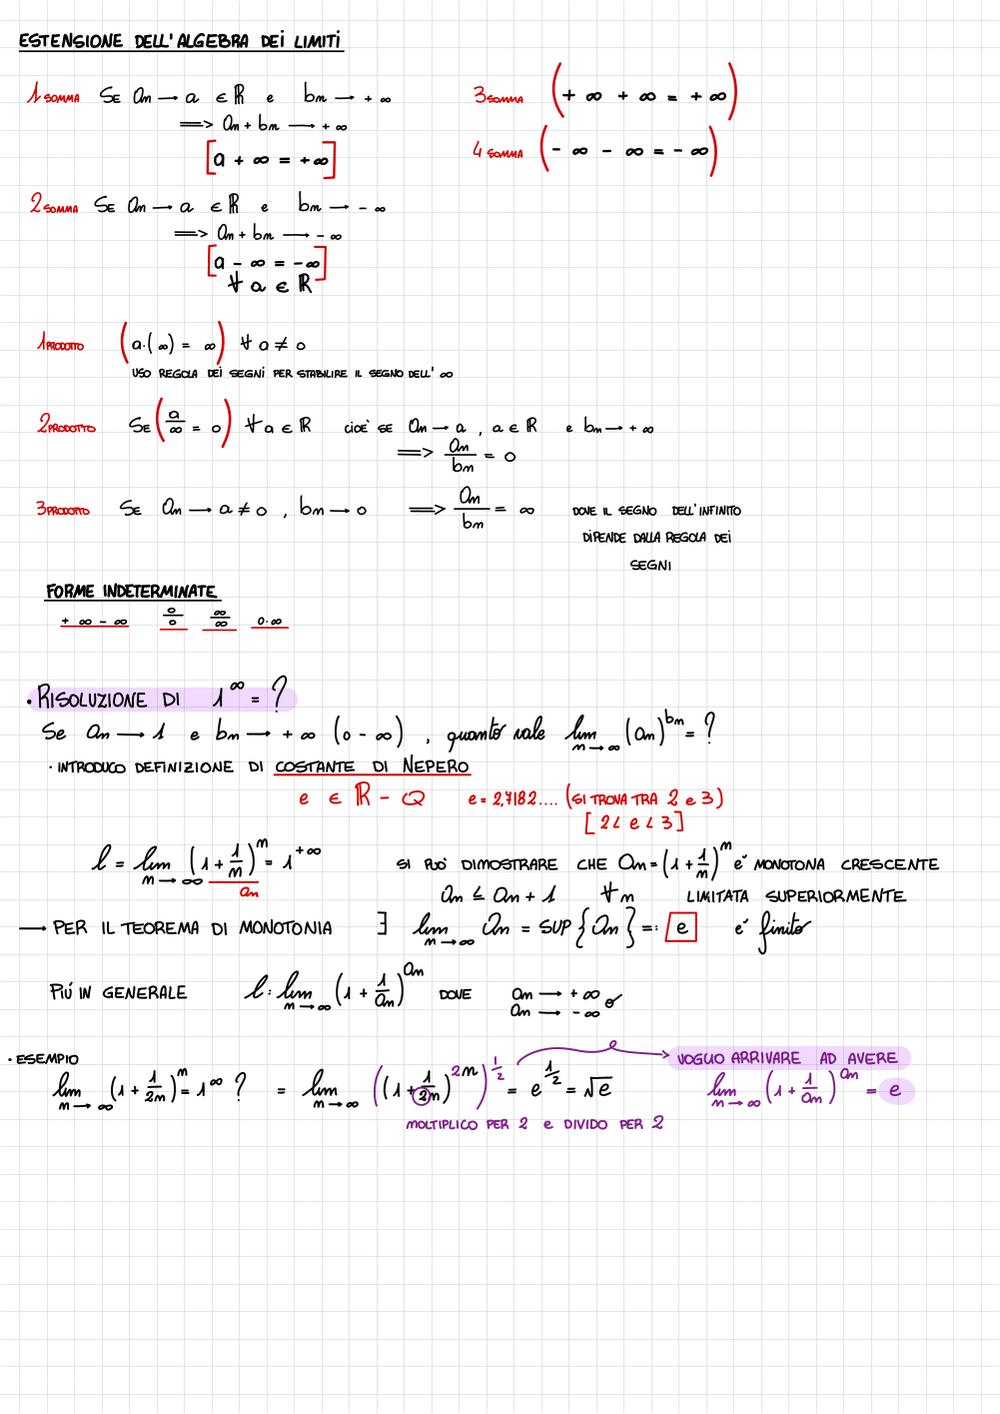 ESTENSIONE DELL'ALGEBRA DEI LIMITI
1 SOMMA SE an → a ∈ ℝ e bn → + ∞
⟹ an + bn → + ∞
[a + ∞ = + ∞]
3 SOMMA (+ ∞ + ∞ = + ∞)
4 SOMMA (- ∞ - ∞ = - ∞)
2 SOMMA SE an → a ∈ ℝ e bn → - ∞
⟹ an + bn → - ∞
[a - ∞ = - ∞]
∀ a ∈ ℝ
1 PRODOTTO (a·(∞) = ∞) ∀ a ≠ 0
USO REGOLA DEI SEGNI PER STABILIRE IL SEGNO DELL' ∞
2 PRODOTTO SE (a/∞ = 0) ∀ a ∈ ℝ CIOE' SE an → a , a ∈ ℝ e bn → + ∞
⟹ an/bn = 0
3 PRODOTTO SE an → a ≠ 0 , bn → 0 ⟹ an/bn = ∞ DOVE IL SEGNO DELL'INFINITO
DIPENDE DALLA REGOLA DEI
SEGNI
FORME INDETERMINATE
+ ∞ - ∞ 0/0 ∞/∞ 0·∞
• RISOLUZIONE DI 1^∞ = ?
Se an → 1 e bn → + ∞ (o - ∞) , quanto vale lim n→∞ (an)^bn = ?
· INTRODUCO DEFINIZIONE DI COSTANTE DI NEPERO
e ∈ ℝ - Q e = 2,7182.... (SI TROVA TRA 2 e 3)
[2 < e < 3]
l = lim n→∞ (1 + 1/n)^n = 1^+∞ SI PUO' DIMOSTRARE CHE an = (1 + 1/n)^n e' MONOTONA CRESCENTE
an
an ≤ an + 1 ∀n LIMITATA SUPERIORMENTE
→ PER IL TEOREMA DI MONOTONIA ∃ lim n→∞ an = SUP {an} =: e e' finito
PIÚ IN GENERALE l: lim n→∞ (1 + 1/an)^an DOVE an → + ∞ o
an → - ∞
• ESEMPIO
lim n→∞ (1 + 1/2n)^n = 1^∞ ? = lim n→∞ ((1 + 1/2n)^2n)^1/2 = e^1/2 = √e
e
VOGLIO ARRIVARE AD AVERE
lim n→∞ (1 + 1/an)^an = e
MOLTIPLICO PER 2 e DIVIDO PER 2